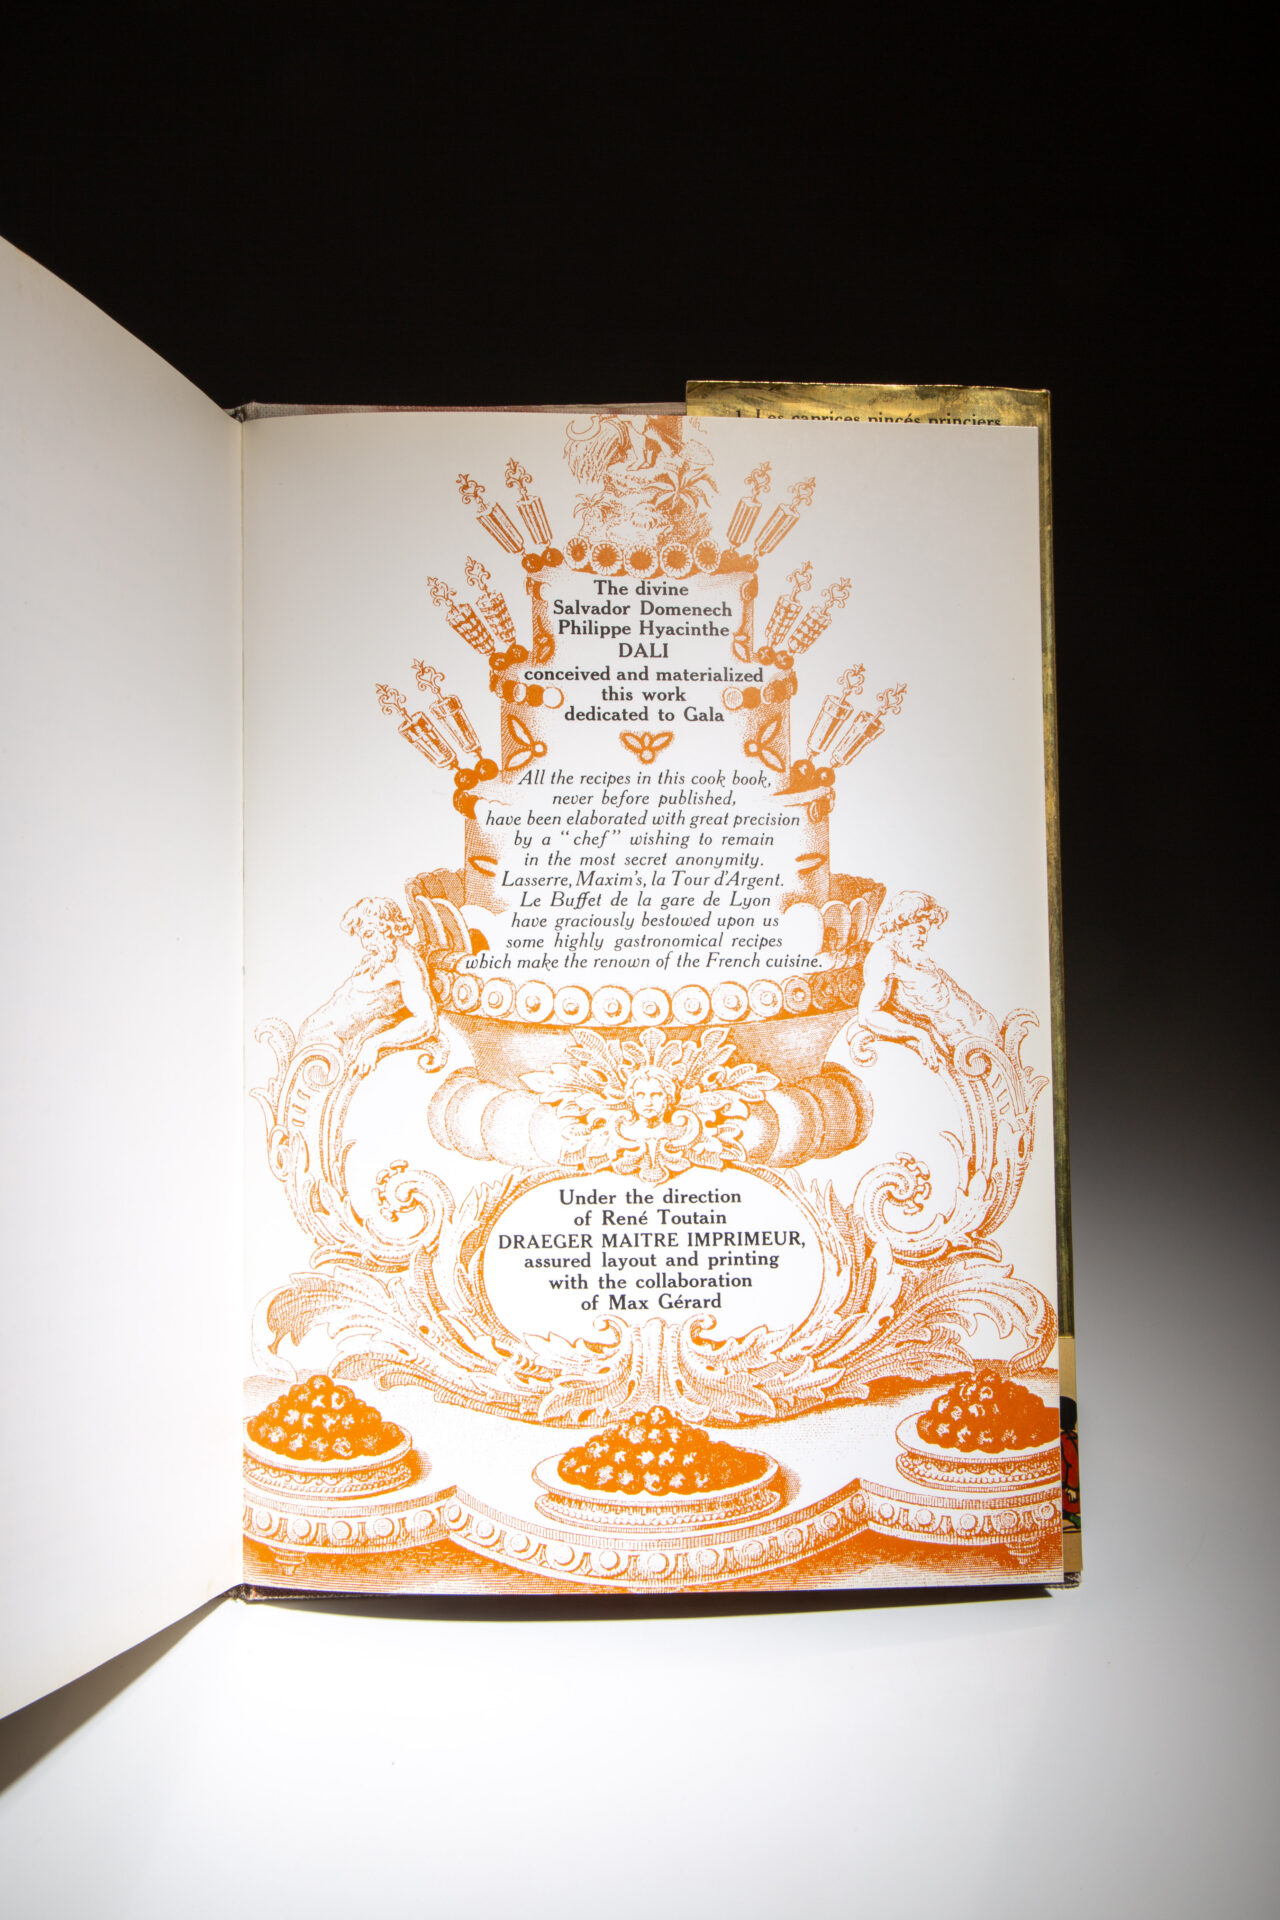 1. Les caprices pincés princiers
The divine
Salvador Domenech
Philippe Hyacinthe
DALI
conceived and materialized
this work
dedicated to Gala
All the recipes in this cook book,
never before published,
have been elaborated with great precision
by a “chef” wishing to remain
in the most secret anonymity.
Lasserre, Maxim's, la Tour d'Argent.
Le Buffet de la gare de Lyon
have graciously bestowed upon us
some highly gastronomical recipes
which make the renown of the French cuisine.
Under the direction
of René Toutain
DRAEGER MAITRE IMPRIMEUR,
assured layout and printing
with the collaboration
of Max Gérard